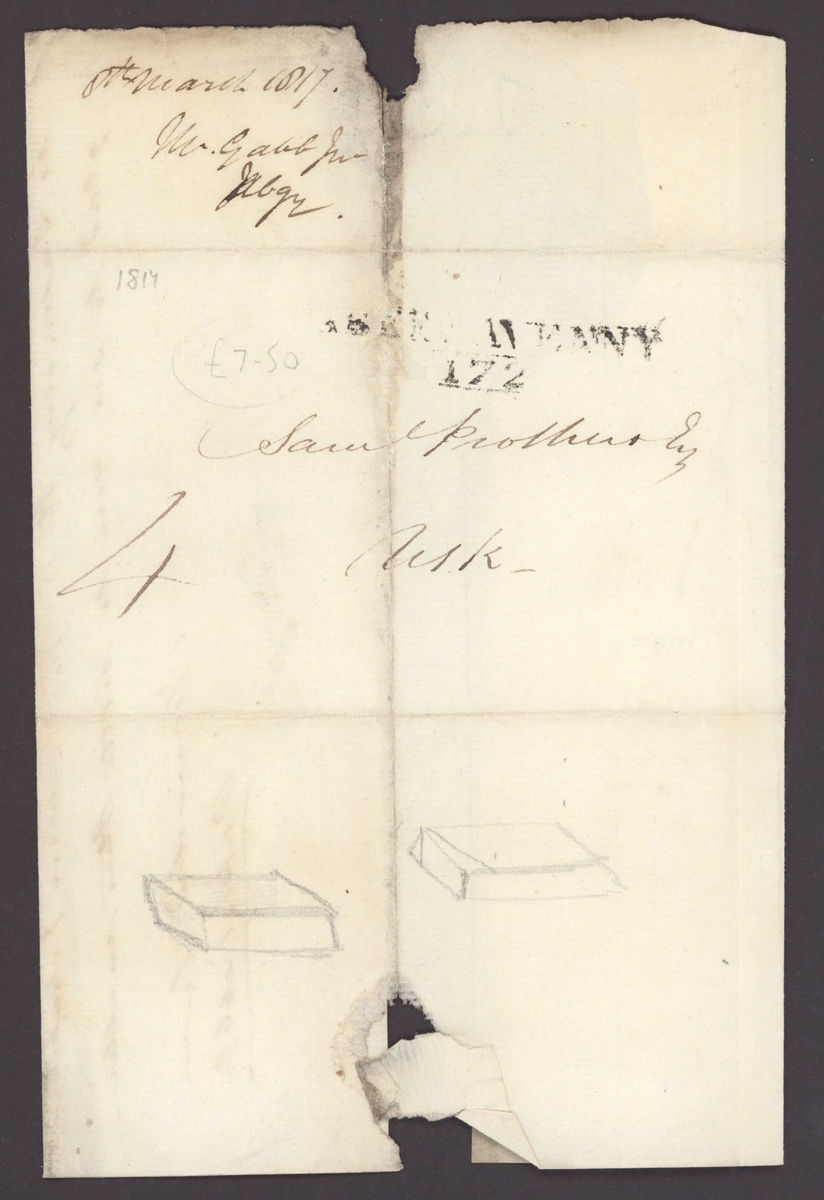 8th March 1817.
Mr. Gabb Jnr
Abgy.
1817
ABERGAVENNY
172
£7-50
Saml Prothero Esq
4 Usk-